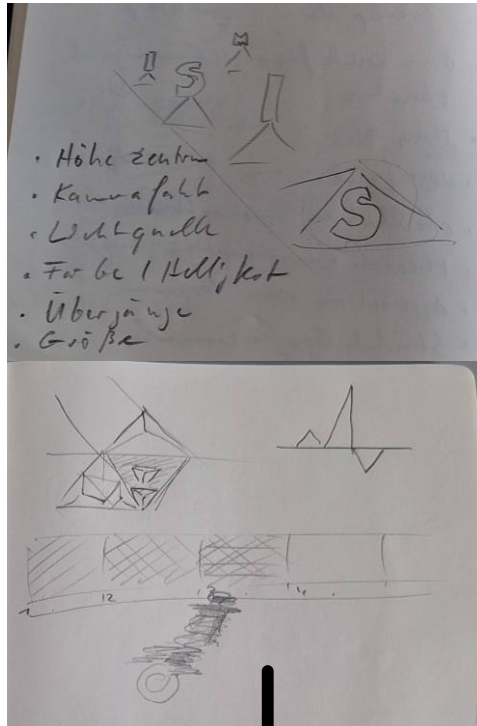 M
S
S
· Höhe Zentrum
· Kamerafahrt
· Lichtquelle
· Farbe / Helligkeit
· Übergänge
· Größe
12